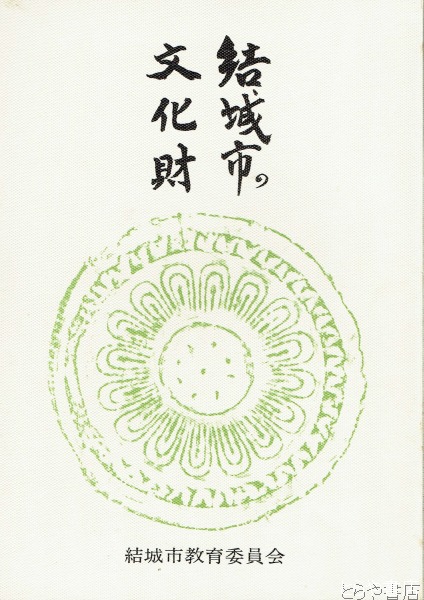 結城市の
文化財
結城市教育委員会
とらや書店